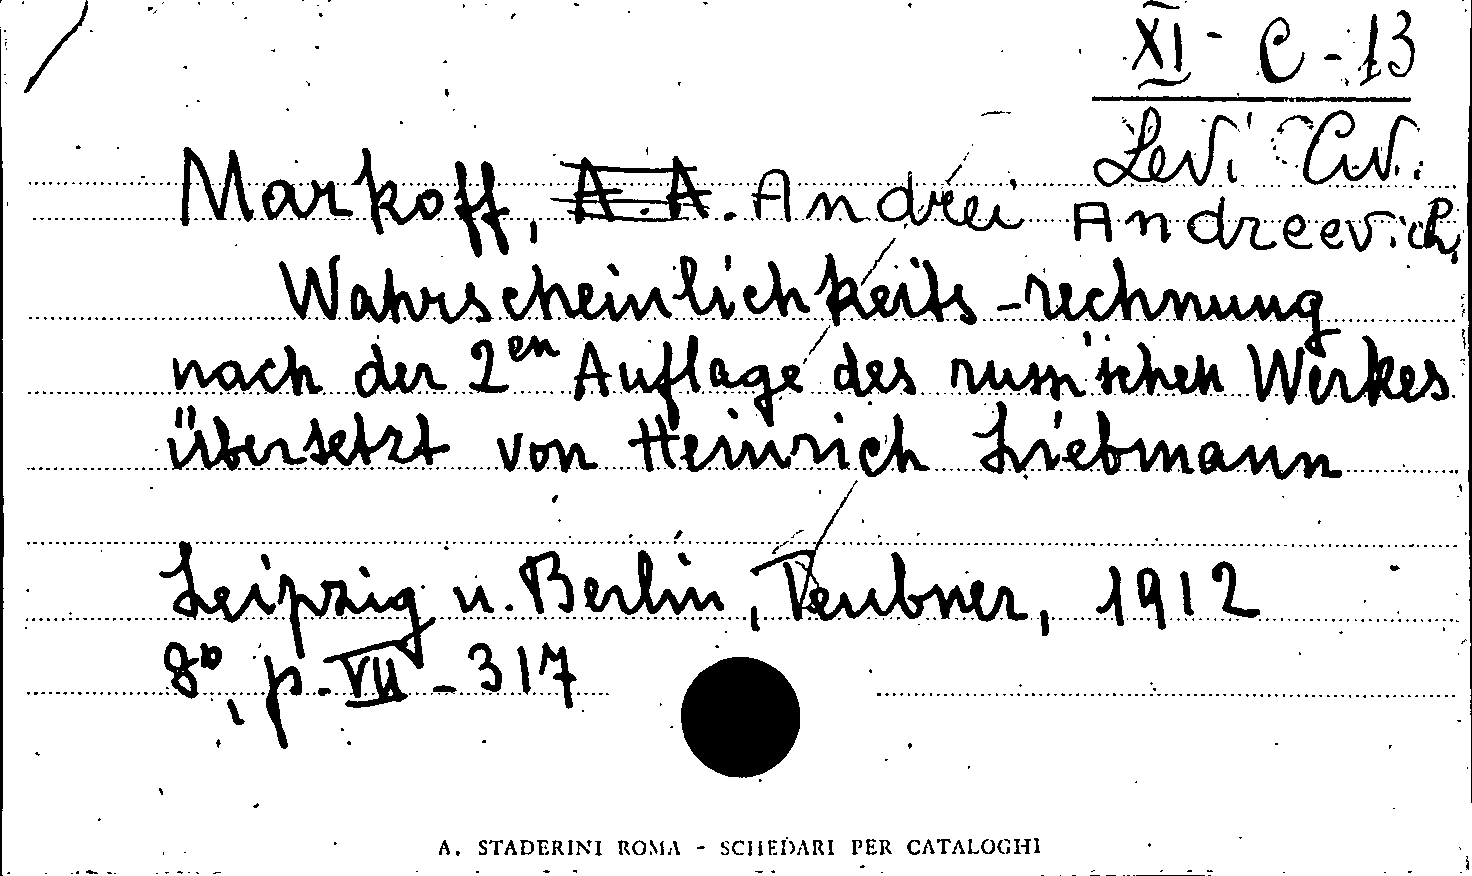 XI - C - 13
Levi Civ.
Markoff, A. A. Andrei Andreevich
Wahrscheinlichkeits-rechnung
nach der 2en Auflage des russischen Werkes
übersetzt von Heinrich Liebmann
Leipzig u. Berlin, Teubner, 1912
8°, p. VII - 317
A. STADERINI ROMA - SCHEDARI PER CATALOGHI